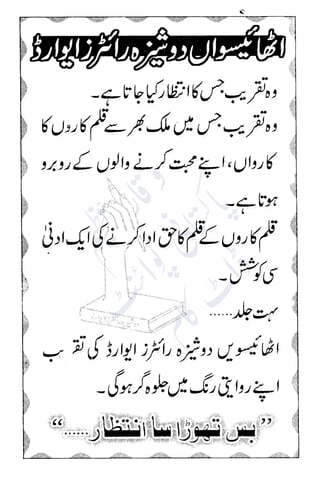 اٹھائیسواں دوشیزہ رائٹرز ایوارڈ
وہ تقریب جس کا انتظار کیا جاتا ہے۔
وہ تقریب جس میں ملک بھر سے قلم کاروں کا
کارواں، اپنے محبت کرنے والوں کے روبرو
ہوتا ہے۔
قلم کاروں کے قلم کا حق ادا کرنے کی ایک ادنیٰ
سی کوشش۔
بہت جلد......
اٹھائیسویں دوشیزہ رائٹرز ایوارڈ کی تقریب
اپنے روایتی رنگ میں جلوہ گر ہوگی۔
”بس تھوڑا سا انتظار......“